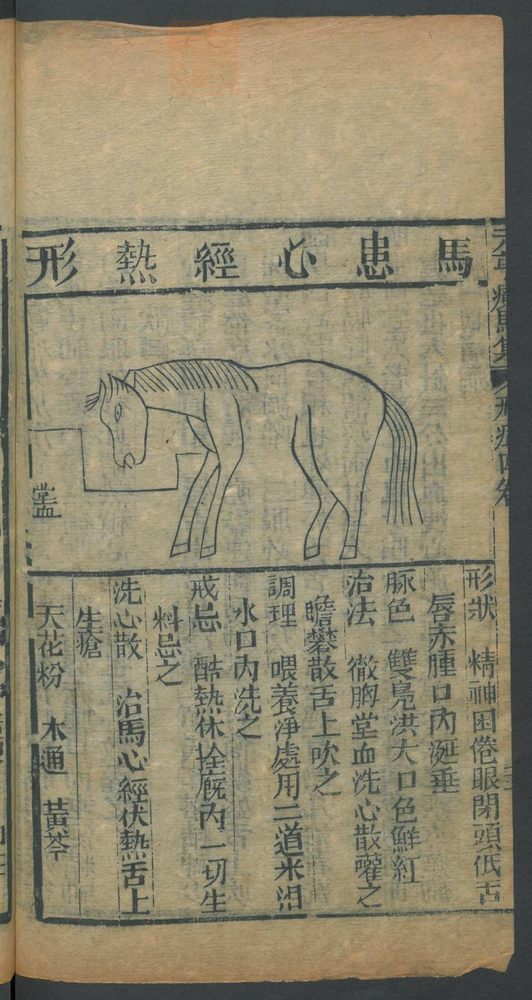 馬患心經熱形
形狀　精神困倦眼閉頭低舌
唇赤腫口內涎垂
脉色　雙鳧洪大口色鮮紅
治法　徹胸堂血洗心散嚾之
膽礬散舌上吹之
調理　喂養淨處用二道米泔
水口內洗之
戒忌　酷熱休拴廐內一切生
料忌之
洗心散　治馬心經伏熱舌上
生瘡
天花粉　木通　黃芩